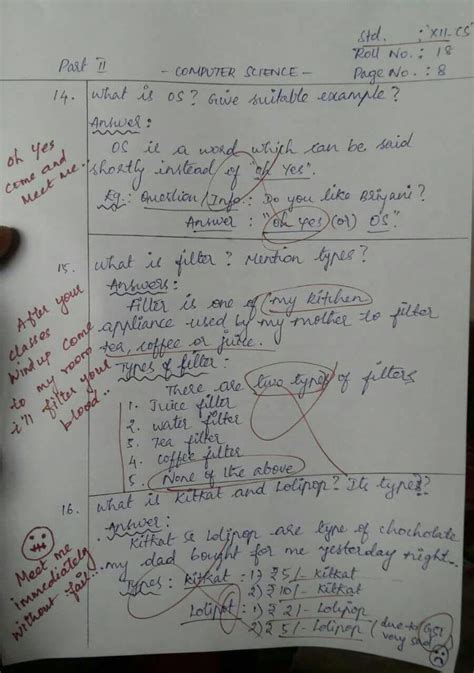 Std. : "XII-CS"
Roll No. : 18
Page No. : 8
Part II
- COMPUTER SCIENCE -
14. What is OS? Give suitable example?
Answer:
OS is a word which can be said
shortly instead of "oh Yes".
Eg.: Question/Info: Do you like Briyani?
Answer: "oh yes (or) OS"
Oh Yes
come and
Meet me.
15. What is filter? Mention types?
Answers:
Filter is one of my kitchen
appliance used by my mother to filter
tea, coffee or juice.
Types of filter:
There are two types of filters
1. Juice filter
2. water filter
3. Tea filter
4. coffee filter
5. None of the above
After your
classes
Windup come
to my room
I'll filter your
blood..
16. What is Kitkat and Lolipop? Its types?
Answer:
Kitkat & Lolipop are type of chocholate
my dad bought for me yesterday night..
Types: Kitkat: 1) ₹5/- Kitkat
2) ₹10/- Kitkat
Lolipop: 1) ₹2/- Lolipop
2) ₹5/- Lolipop (due to GST
very sad
Meet me
immediately
without fail...